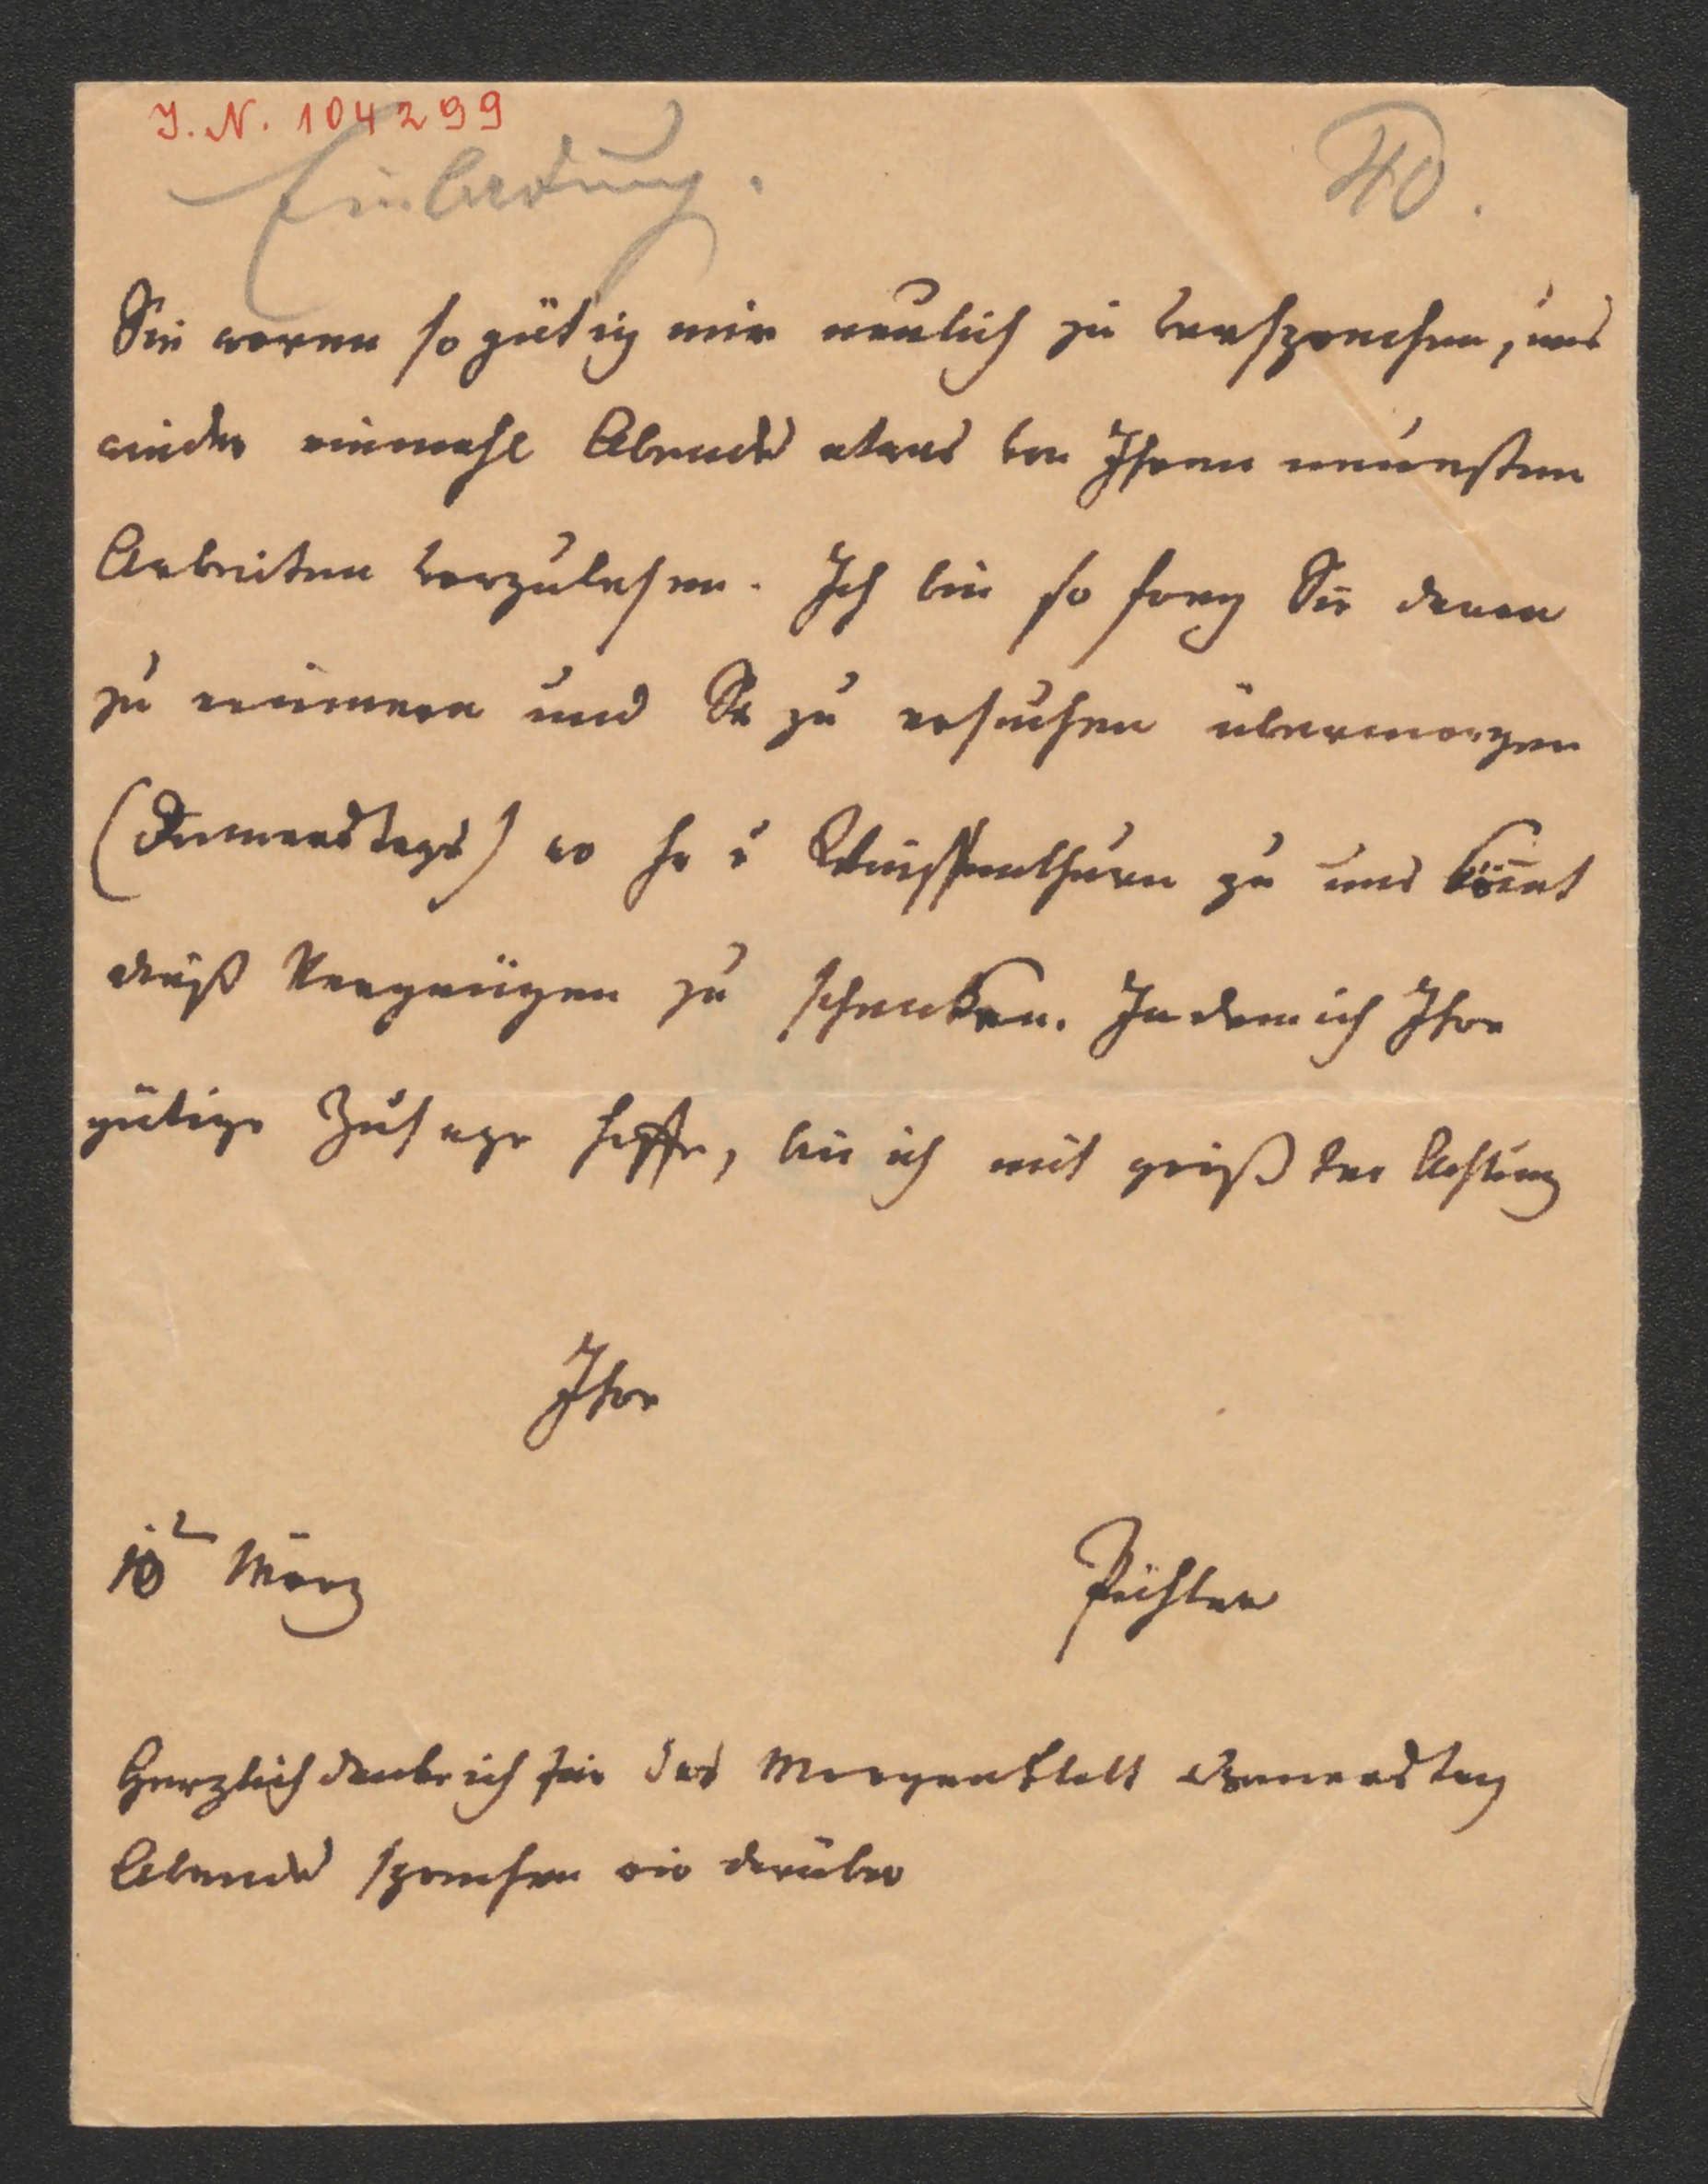 I. N. 104299
Einladung.
40.
Sie waren so gütig mir neulich zu versprechen, uns
wieder einmahl Abends etwas von Ihren neuesten
Arbeiten vorzulesen. Ich bin so frey Sie daran
zu erinnern und Sie zu ersuchen übermorgen
(Donnerstags) wo Weissenthurn zu uns kömt
dieß Vergnügen zu schenken. Indem ich Ihre
gütige Zusage hoffe, bin ich mit größter Achtung
Ihre
März
Pichler
Herzlich danke ich für das Morgenblatt Donnerstag
Abends sprechen wir darüber